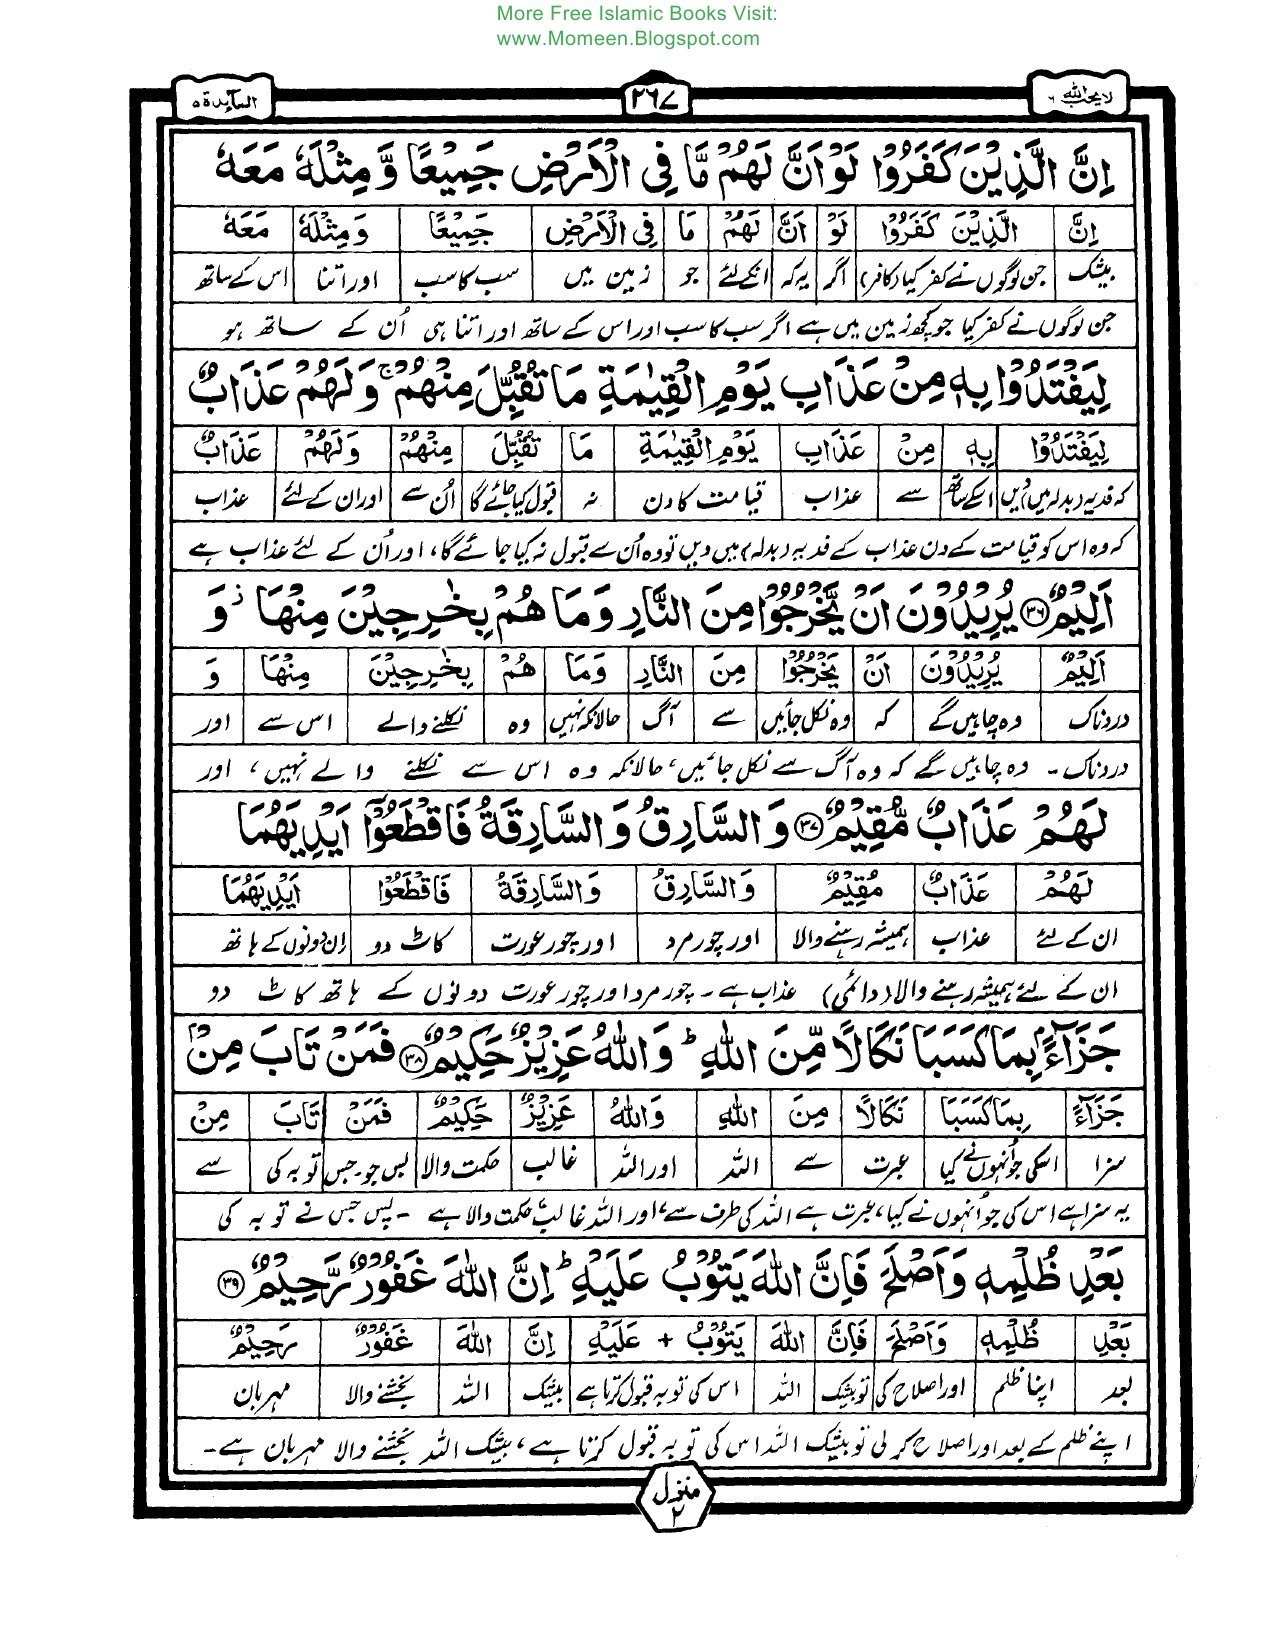 More Free Islamic Books Visit:
www.Momeen.Blogspot.com
لا يحب الله ٦
٢٦٧
المآئدة ٥
اِنَّ الَّذِيْنَ كَفَرُوْا لَوْ اَنَّ لَهُمْ مَّا فِى الْاَرْضِ جَمِيْعًا وَّمِثْلَهٗ مَعَهٗ
اِنَّ الَّذِيْنَ كَفَرُوْا لَوْ اَنَّ لَهُمْ مَا فِى الْاَرْضِ جَمِيْعًا وَمِثْلَهٗ مَعَهٗ
بیشک جن لوگوں نے کفر کیا (کافر) اگر یہ کہ انکے لئے جو زمین میں سب کا سب اور اتنا اس کے ساتھ
جن لوگوں نے کفر کیا جو کچھ زمین میں ہے اگر سب کا سب اور اس کے ساتھ اور اتنا ہی اُن کے ساتھ ہو
لِيَفْتَدُوْا بِهٖ مِنْ عَذَابِ يَوْمِ الْقِيٰمَةِ مَا تُقُبِّلَ مِنْهُمْ ۚ وَلَهُمْ عَذَابٌ
لِيَفْتَدُوْا بِهٖ مِنْ عَذَابِ يَوْمِ الْقِيٰمَةِ مَا تُقُبِّلَ مِنْهُمْ وَلَهُمْ عَذَابٌ
کہ فدیہ (بدلہ میں) دیں اسکے ساتھ سے عذاب قیامت کا دن نہ قبول کیا جائے گا اُن سے اور ان کے لئے عذاب
کہ وہ اس کو قیامت کے دن عذاب کے فدیہ (بدلہ) میں دیں تو وہ اُن سے قبول نہ کیا جائے گا، اور اُن کے لئے عذاب ہے
اَلِيْمٌ ۝٣٦ يُرِيْدُوْنَ اَنْ يَّخْرُجُوْا مِنَ النَّارِ وَمَا هُمْ بِخٰرِجِيْنَ مِنْهَا ۡ وَ
اَلِيْمٌ يُرِيْدُوْنَ اَنْ يَّخْرُجُوْا مِنَ النَّارِ وَمَا هُمْ بِخٰرِجِيْنَ مِنْهَا وَ
دردناک وہ چاہیں گے کہ وہ نکل جائیں سے آگ حالانکہ نہیں وہ نکلنے والے اس سے اور
دردناک - وہ چاہیں گے کہ وہ آگ سے نکل جائیں، حالانکہ وہ اس سے نکلنے والے نہیں، اور
لَهُمْ عَذَابٌ مُّقِيْمٌ ۝٣٧ وَالسَّارِقُ وَالسَّارِقَةُ فَاقْطَعُوْٓا اَيْدِيَهُمَا
لَهُمْ عَذَابٌ مُقِيْمٌ وَالسَّارِقُ وَالسَّارِقَةُ فَاقْطَعُوْٓا اَيْدِيَهُمَا
ان کے لئے عذاب ہمیشہ رہنے والا اور چور مرد اور چور عورت کاٹ دو ان دونوں کے ہاتھ
ان کے لئے ہمیشہ رہنے والا (دائمی) عذاب ہے - چور مرد اور چور عورت دونوں کے ہاتھ کاٹ دو
جَزَآءًۢ بِمَا كَسَبَا نَكَالًا مِّنَ اللّٰهِ ؕ وَاللّٰهُ عَزِيْزٌ حَكِيْمٌ ۝٣٨ فَمَنْ تَابَ مِنْۢ
جَزَآءً بِمَا كَسَبَا نَكَالًا مِنَ اللّٰهِ وَاللّٰهُ عَزِيْزٌ حَكِيْمٌ فَمَنْ تَابَ مِنْ
سزا اسکی جو انہوں نے کیا عبرت سے اللہ اور اللہ غالب حکمت والا بس جو۔جس توبہ کی سے
یہ سزا ہے اس کی جو انہوں نے کیا، عبرت ہے اللہ کی طرف سے، اور اللہ غالب حکمت والا ہے - پس جس نے توبہ کی
بَعْدِ ظُلْمِهٖ وَاَصْلَحَ فَاِنَّ اللّٰهَ يَتُوْبُ عَلَيْهِ ؕ اِنَّ اللّٰهَ غَفُوْرٌ رَّحِيْمٌ ۝٣٩
بَعْدِ ظُلْمِهٖ وَاَصْلَحَ فَاِنَّ اللّٰهَ يَتُوْبُ + عَلَيْهِ اِنَّ اللّٰهَ غَفُوْرٌ رَحِيْمٌ
بعد اپنا ظلم اور اصلاح کی تو بیشک اللہ اس کی توبہ قبول کرتا ہے بیشک اللہ بخشنے والا مہربان
اپنے ظلم کے بعد اور اصلاح کر لی تو بیشک اللہ اس کی توبہ قبول کرتا ہے، بیشک اللہ بخشنے والا مہربان ہے -
منزل ٢